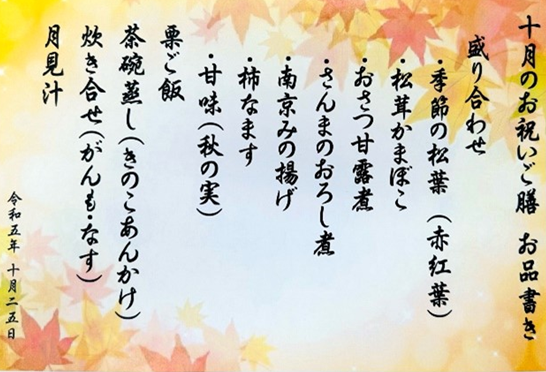 十月のお祝いご膳 お品書き
盛り合わせ
・季節の松葉（赤紅葉）
・松茸かまぼこ
・おさつ甘露煮
・さんまのおろし煮
・南京みの揚げ
・柿なます
・甘味（秋の実）
栗ご飯
茶碗蒸し（きのこあんかけ）
炊き合せ（がんも・なす）
月見汁
令和五年 十月二五日